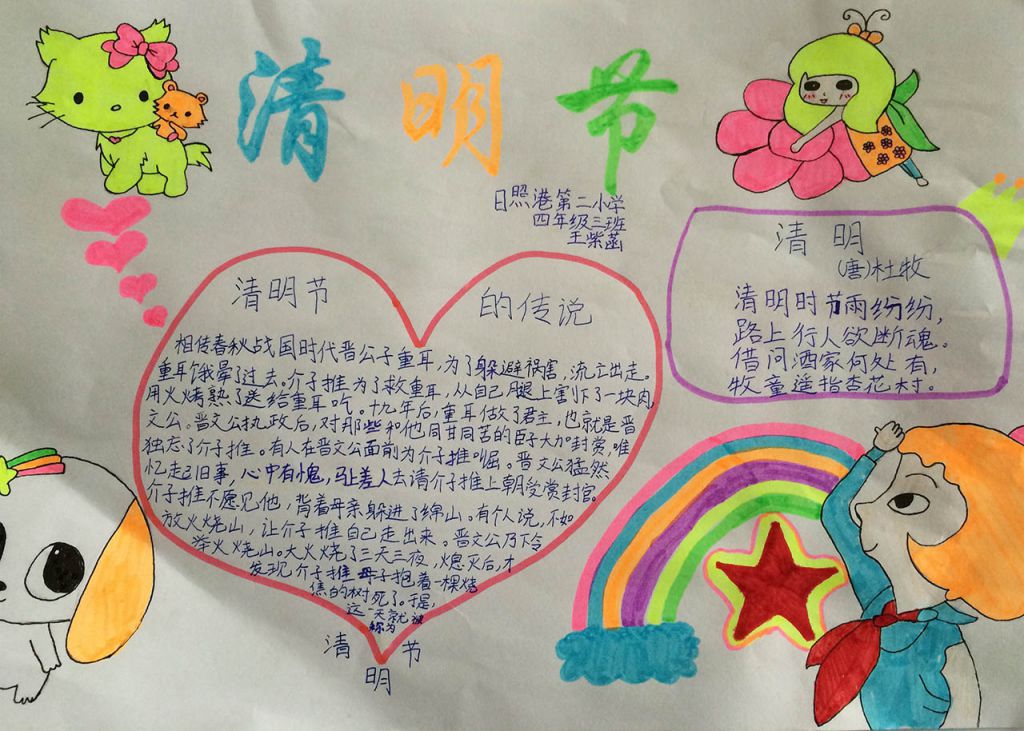 清明节
日照港第二小学
四年级三班
王紫菡
清明节 的传说
相传春秋战国时代晋公子重耳,为了躲避祸害,流亡出走。
重耳饿晕了过去。介子推为了救重耳,从自己腿上割下了一块肉,
用火烤熟了送给重耳吃。十九年后,重耳做了君主,也就是晋
文公。晋文公执政后,对那些和他同甘同苦的臣子大加封赏,唯
独忘了介子推。有人在晋文公面前为介子推 崛。晋文公猛然
忆起旧事,心中有愧,马上差人去请介子推上朝受赏封官。
介子推不愿见他,背着母亲躲进了绵山。有个人说,不如
放火烧山,让介子推自己走出来。晋文公乃下令
举火烧山。大火烧了三天三夜,熄灭后,才
发现介子推母子抱着一棵烧
焦的树死了。于是,
这一天就被
称为
清明节
清明
(唐)杜牧
清明时节雨纷纷,
路上行人欲断魂。
借问酒家何处有,
牧童遥指杏花村。